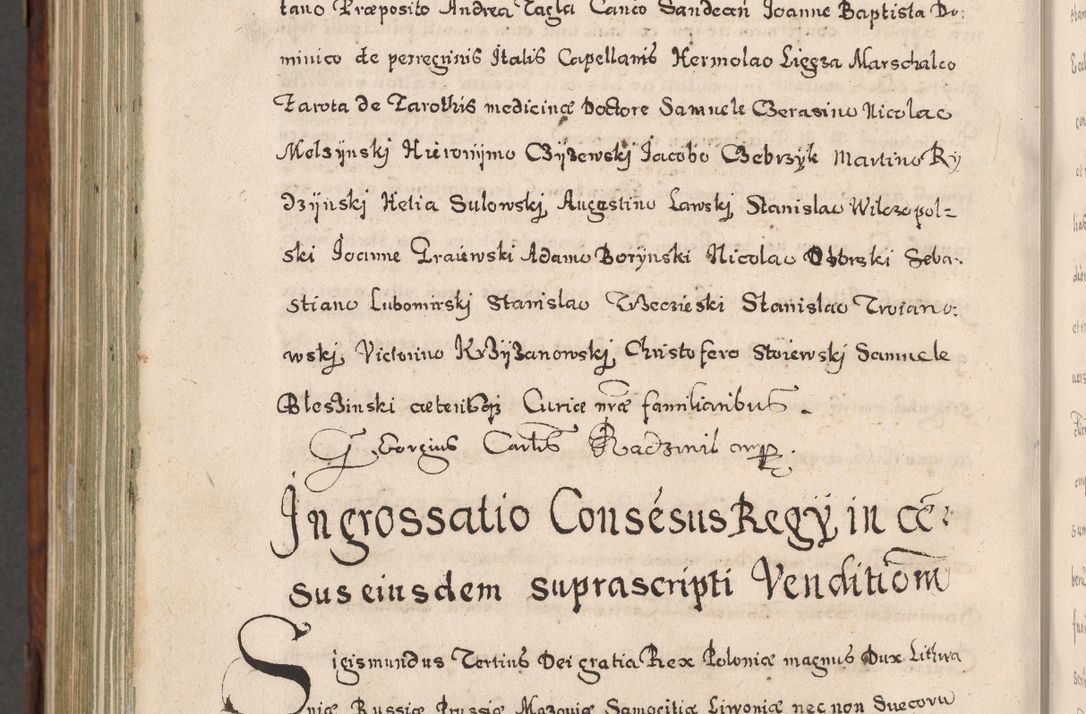 tano Præposito Andrea Tagla Canco Sandecen̄ Joanne Baptista Do:
minico de peregrinis Italis Capellanis Hermolao Ligęza Marschalco
Zarota de Zarothis medicinæ Doctore Samuele Gerasino Nicolao
Molsÿnskj Hieronÿmo Cżÿżewskj Jacobo Gebrzyk Martino Rÿ
dzÿnskj Helia Sulowskj, Augustino Lawskj, Stanislao Wilczopol=
ski Joanne Graiewski Adamo Borÿnski Nicolao Oborski Seba:
stiano Lubomirskj Stanislao Trzeczieski Stanislao Troiano:
wskj, Victorino Krzÿżanowskj, Christofero Stoiewskj Samuele
Bleszinski cæterisq3 Curiæ nr̄æ familiaribus.
Georgius Carlis Radziwil mp
Ingrossatio Conse͂sus Regÿ, in cē:
sus eiusdem suprascripti Venditiom̄
Sigismundus Tertius Dei gratia Rex Poloniæ magnus Dux Lithua
niæ Russiæ Prussiæ Mazoviæ Samogitiæ Livoniæ nec non Suecorū